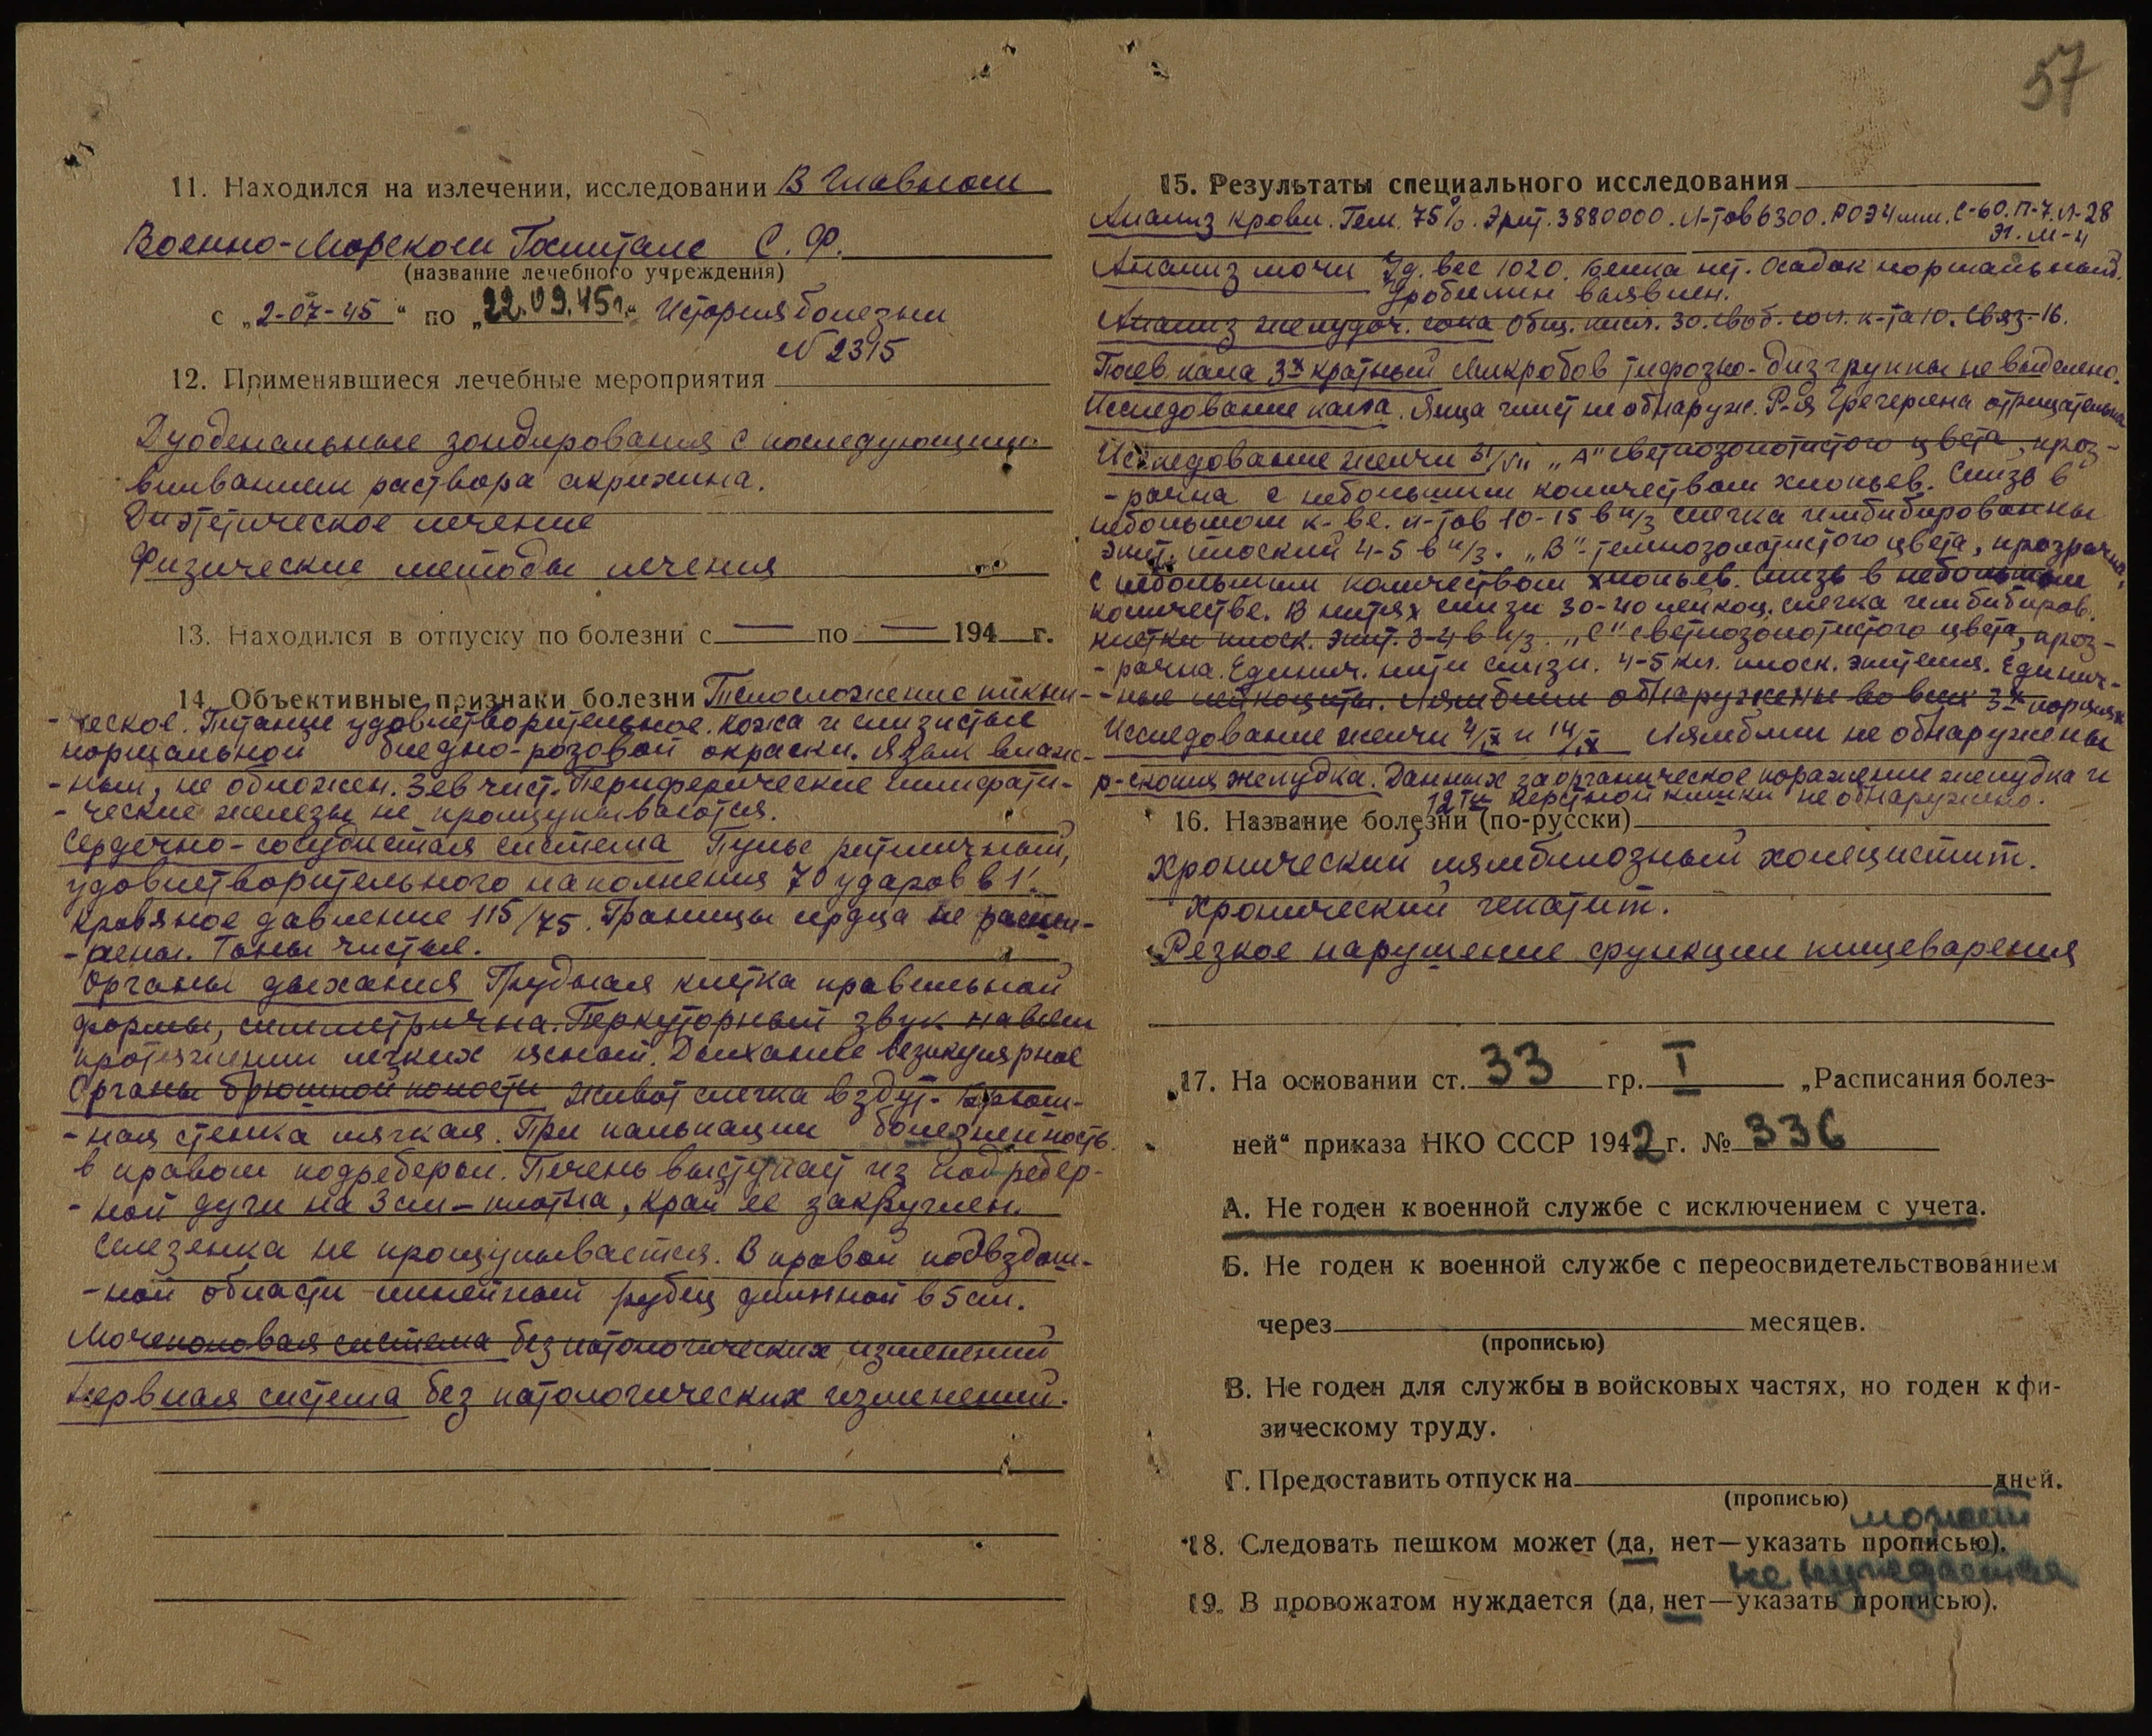 57
11. Находился на излечении, исследовании В Главном
Военно-Морском Госпитале С. Ф.
(название лечебного учреждения)
с „2-07-45“ по „22.09.45г.“ История болезни
№ 2315
12. Применявшиеся лечебные мероприятия
Дуоденальные зондирования с последующим
вливанием раствора акрихина.
Диэтетическое лечение
Физические методы лечения
13. Находился в отпуску по болезни с — по — 194 г.
14. Объективные признаки болезни Телосложение пикни-
-ческое. Питание удовлетворительное. Кожа и слизистые
нормальной бледно-розовой окраски. Язык влаж-
-ный, не обложен. Зев чист. Периферические лимфати-
-ческие железы не прощупываются.
Сердечно-сосудистая система Пульс ритмичный,
удовлетворительного наполнения 70 ударов в 1'.
Кровяное давление 115/75. Границы сердца не расши-
-рены. Тоны чистые.
Органы дыхания Грудная клетка правильной
формы, симметрична. Перкуторный звук на всем
протяжении легких ясный. Дыхание везикулярное
Органы брюшной полости Живот слегка вздут. Брюш-
-ная стенка мягкая. При пальпации болезненность
в правом подреберьи. Печень выступает из подребер-
-ной дуги на 3 см – плотна, край ее закруглен.
Селезенка не прощупывается. В правой подвздош-
-ной области линейный рубец длинной в 5 см.
Мочеполовая система без патологических изменений
Нервная система без патологических изменений.
15. Результаты специального исследования
Анализ крови. Гем. 75%. Эрит. 3880000. Л-тов 6300. РОЭ 4 мм. С-60. П-7. Л-28
Э1. М-4
Анализ мочи Уд. вес 1020. Белка нет. Осадок нормальный.
Уробилин выявлен.
Анализ желудоч. сока Общ. кисл. 30. Своб. сол. к-та 10. Связ. 16.
Посев кала 3х кратный Микробов тифозно-диз группы не выделено.
Исследование кала. Яица глист не обнаруж. Р-ия Грегерсена отрицательна
Исследование желчи 31/VII „А“ светлозолотистого цвета, проз-
-рачна с небольшим количеством хлопьев. Слизь в
небольшом к-ве. Л-тов 10-15 в п/з слегка имбибированны
Эпит. плоский 4-5 в п/з. „В“ - темнозолотистого цвета, прозрачна,
с небольшим количеством хлопьев. Слизь в небольшом
количестве. В нитях слизи 30-40 лейкоц. слегка имбибиров.
клетки плоск. эпит. 3-4 в п/з. „С“ светлозолотистого цвета, проз-
-рачна. Единич. нити слизи. 4-5 кл. плоск. эпителия. Единич-
-ные лейкоциты. Лямблии обнаружены во всех 3х порциях
Исследование желчи 4/IX и 14/IX Лямблии не обнаружены
р-скопия желудка. Данных за органическое поражение желудка и
12ти перстной кишки не обнаружено.
16. Название болезни (по-русски)
Хронический лямблиозный холецистит.
Хронический гепатит.
Резкое нарушение функции пищеварения
17. На основании ст. 33 гр. I „Расписания болез-
ней“ приказа НКО СССР 1942 г. № 336
А. Не годен к военной службе с исключением с учета.
Б. Не годен к военной службе с переосвидетельствованием
через месяцев.
(прописью)
В. Не годен для службы в войсковых частях, но годен к фи-
зическому труду.
Г. Предоставить отпуск на дней.
(прописью)
может
18. Следовать пешком может (да, нет—указать прописью).
не нуждается
19. В провожатом нуждается (да, нет—указать прописью).